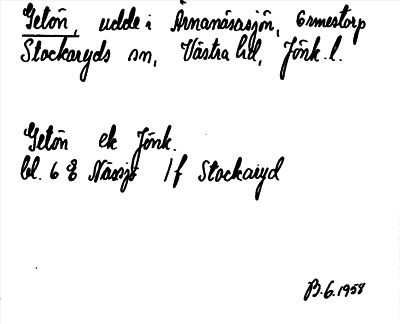 Getön, udde i Årnanäsasjön, Ormestorp
Stockaryds sn, Västra hd, Jönk. l.
Getön ek Jönk.
bl. 6 g Nässjö 1 f Stockaryd
B.G. 1958